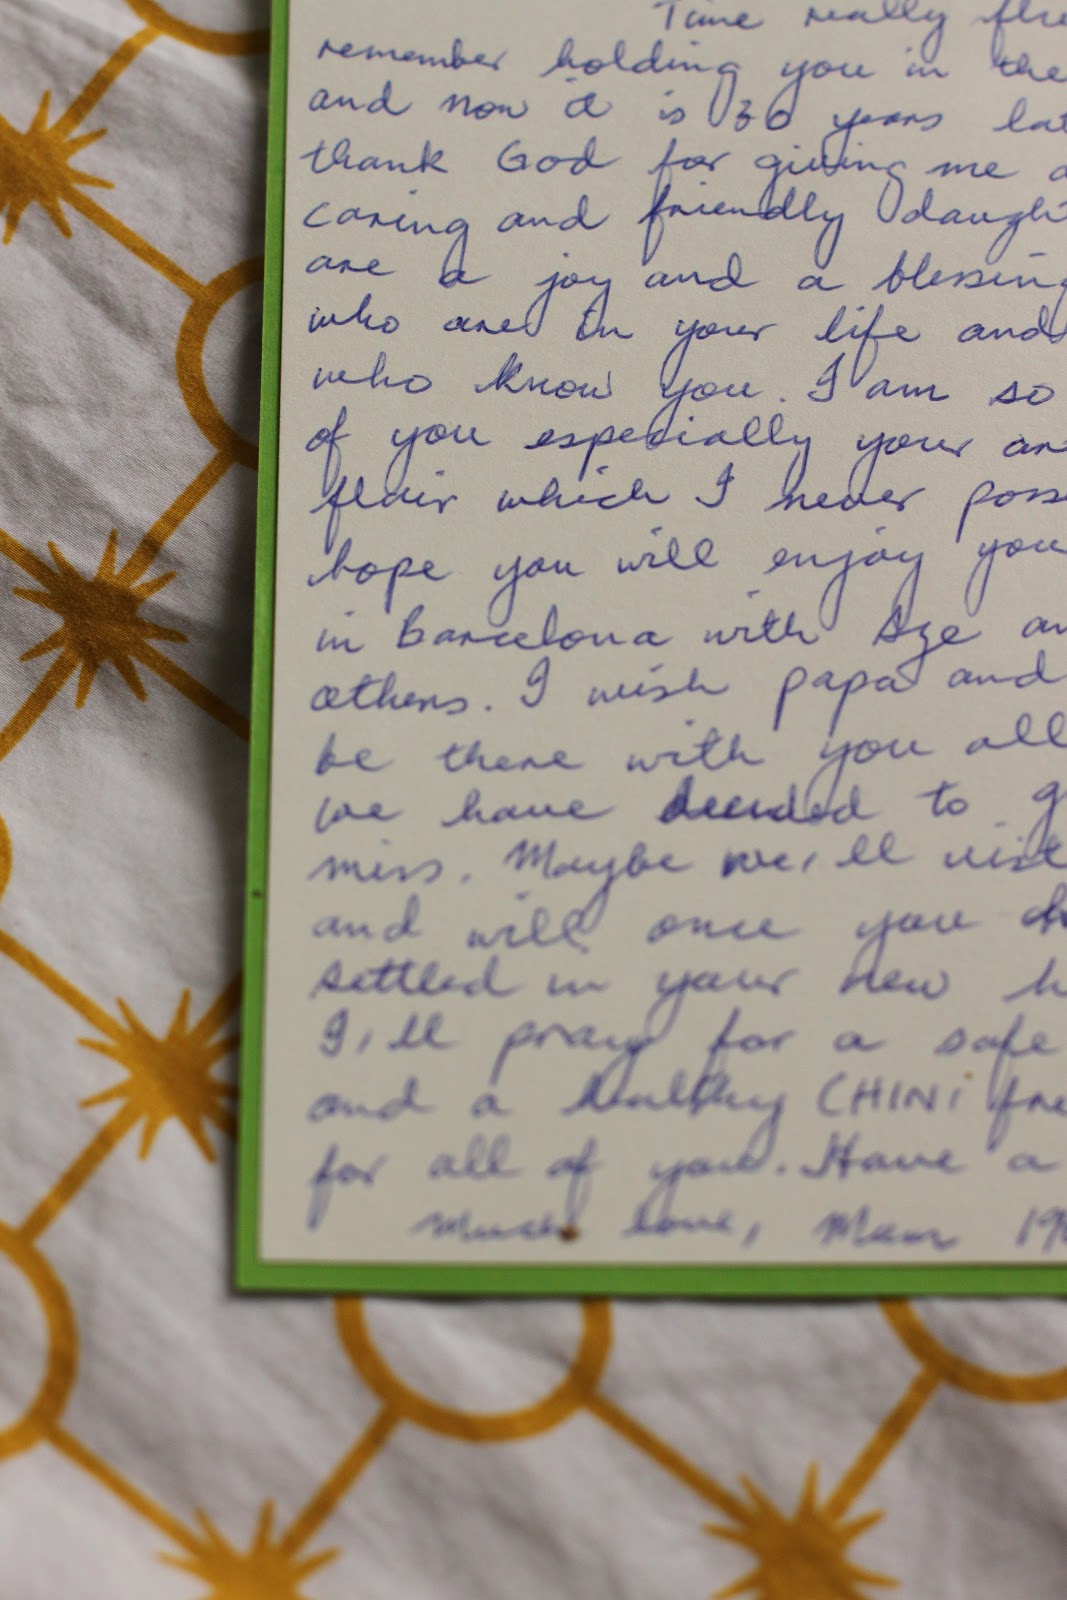 Time really flie
remember holding you in the
and now it is 30 years lat
thank God for giving me a
caring and friendly daught
are a joy and a blessing
who are in your life and
who know you. I am so
of you especially your ar
flair which I never poss
hope you will enjoy you
in Barcelona with an
others. I wish papa and
be there with you all
we have decided to g
miss. Maybe we'll visit
and will once you
settled in your new h
I'll pray for a safe
and a healthy CHINI fre
for all of you. Have a
Much love, Mom 19